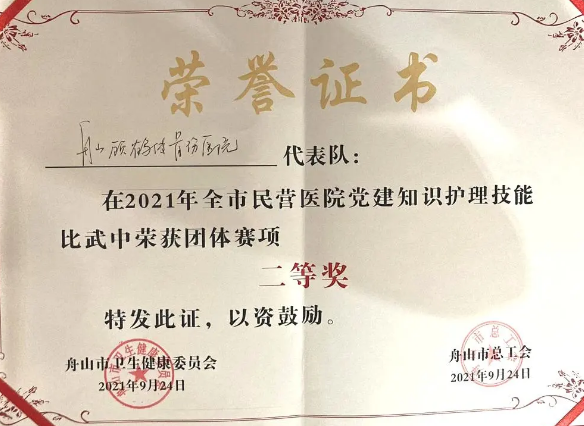 荣誉证书
舟山顾鹤伟骨伤医院 代表队：
在2021年全市民营医院党建知识护理技能
比武中荣获团体赛项
二等奖
特发此证，以资鼓励。
舟山市卫生健康委员会
2021年9月24日
舟山市总工会
2021年9月24日